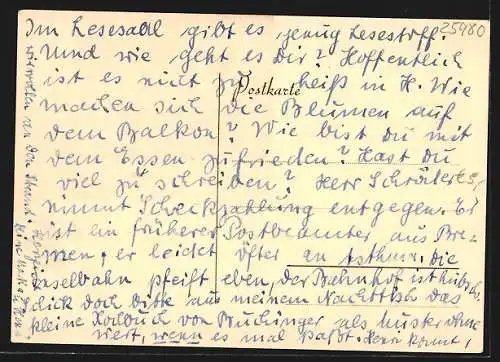 25980
Im Lesesaal gibt es genug Lesestoff.
Und wie geht es Dir? Hoffentlich
ist es nicht zu heiß in H. Wie
Postkarte
machen sich die Blumen auf
dem Balkon? Wie bist du mit
dem Essen zufrieden? Hast du
viel zu schreiben? Herr Schröter
nimmt Scheckzahlung entgegen. Er
ist ein früherer Postbeamter aus Bre-
men, er leidet öfter an Asthma. Die
Inselbahn pfeift eben, der Bahnhof ist hübsch.
Schick doch bitte aus meinem Nachttisch das
kleine Kochbuch von Buchinger als Muster ohne
Wert, wenn es mal paßt. Herr kommt,
wir wollen an den Strand. Herzlich